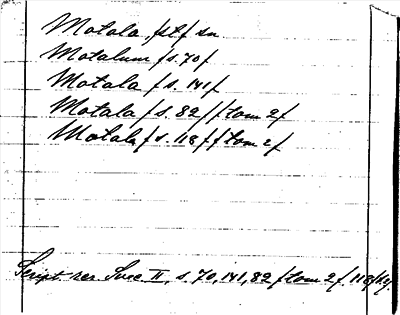 Motala /stf sn
Motalum /s. 70/
Motala /s. 141/
Motala /s. 82/ /tom 2/
Motala /s. 118/ /tom 2/
Script rer Svec II, s. 70, 141, 82 /tom 2/, 118/